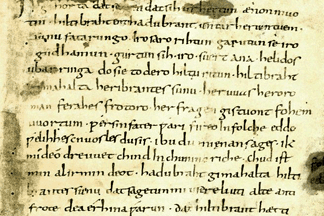 gihorta dat seggen dat sih urhettun ænon muo
tin · hiltibraht enti hadubrant · untar heriun tuem ·
sunu fatarungo · iro saro rihtun garutun se iro
gudhamun · gurtun sih · iro · suert ana · helidos
ubar ringa do sie to dero hiltiu ritun · hiltibraht
gimahalta heribrantes sunu · her uuas heroro
man ferahes frotoro · her fragen gistuont fohem
uuortum · ƿer sin fater ƿari fireo in folche eddo
ƿelihhes cnuosles du sis · ibu du mi enan sages · ik
mideo dre uuet chind in chunincriche · chud ist
min al irmin deot · hadubraht gimahalta hilti
brantes sunu · dat sagetun mi usere liuti alte anti
frote dea erhina ƿarun · dat hiltibrant hætti